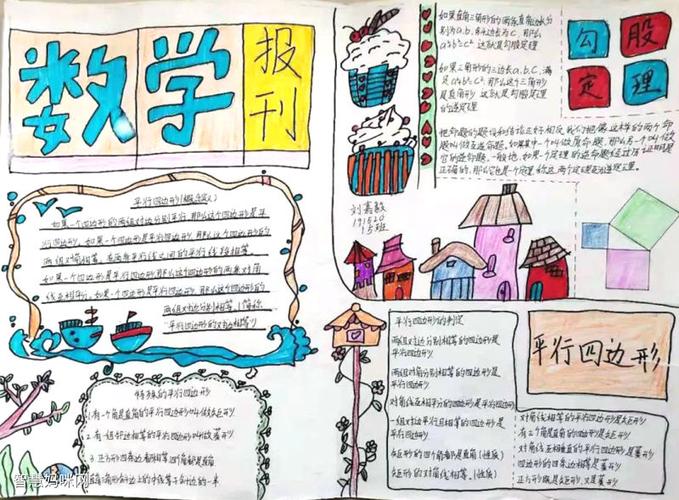 数学
报刊
如果直角三角形的两条直角边长分
别为a,b,斜边长为c,那么
a²+b²=c² 这就是勾股定理
如果三角形的三边长a.b.c.满
足a²+b²=c²,那么这个三角形
是直角形 这就是勾股定理
的逆定理
勾股
定理
把命题的题设和结论正好相反
刘嘉毅
191520
15班
平行四边形(概念定义)
如果一个四边形的两组对边分别平行,那么这个四边形是平
行四边形。如果一个四边形是平行四边形,那么这个四边形的
两组对角相等。在两条平行线之间的平行线段相等
如果一个四边形是平行四边形,那么这个四边形的两条对角
线互相平分。如果一个四边形是平行四边形,那么这个四边形的
两组对边分别相等。(简称
"平行四边形的对边相等")
特殊的平行四边形
1.有一个角是直角的平行四边形叫做矩形
2.有一组邻边相等的平行四边形叫做菱形
3.正方形四条边都相等四个角都是直角
三角形的中位线
平行四边形的判定
两组对边分别相等的四边形是
平行四边形
两组对角分别相等的四边形是
平行四边形
对角线互相平分的四边形是平行四边形
一组对边平行且相等的四边形是
平行四边形
矩形的四个角都是直角(性质)
矩形的对角线相等。(性质)
平行四边形
对角线相等的平行四边形是矩形
有三个角是直角的四边形是矩形
对角线互相垂直的平行四边形是菱形
四边形的四条边相等是菱形
正方形既是矩形,又是菱形
智慧妈咪网